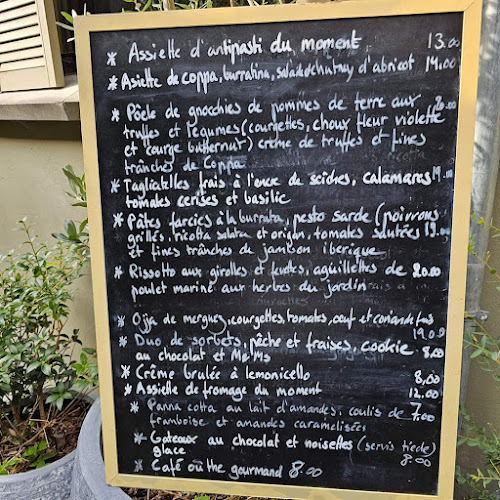 * Assiette d'antipasti du moment 13.00
* Asiette de coppa, burratina, salade chutney d'abricot 14.00
* Pôele de gnocchies de pommes de terre aux 20.00
truffes et légumes (courgettes, choux fleur violette
et courge butternut) crème de truffes et fines
trânches de Coppa
* Tagliatelles frais à l'encre de seiches, calamares 19.00
tomates cerises et basilic
* Pâtes farcies à la burrata, pesto sarde (poivrons
grillés, ricotta salata et origan, tomates sautées 19.00
et fines trânches de jambon iberique
* Rissotto aux girolles et fruites, aguillettes de 20.00
poulet mariné aux herbes du jardin
* Ojja de merguez, courgettes, tomates, oeuf et coriande frais
19.00
* Duo de sorbets, pêche et fraises, cookie
au chocolat et M&Ms 8.00
* Crème brulée à lemonicello 8,00
* Assielle de fromage du moment 12.00
* Panna cotta au lait d'amandes, coulis de 7.00
framboise et amandes caramelisées
* Gateaux au chocolat et noisettes (servis tiede)
glace 8.00
* Café ou the gourmand 8.00